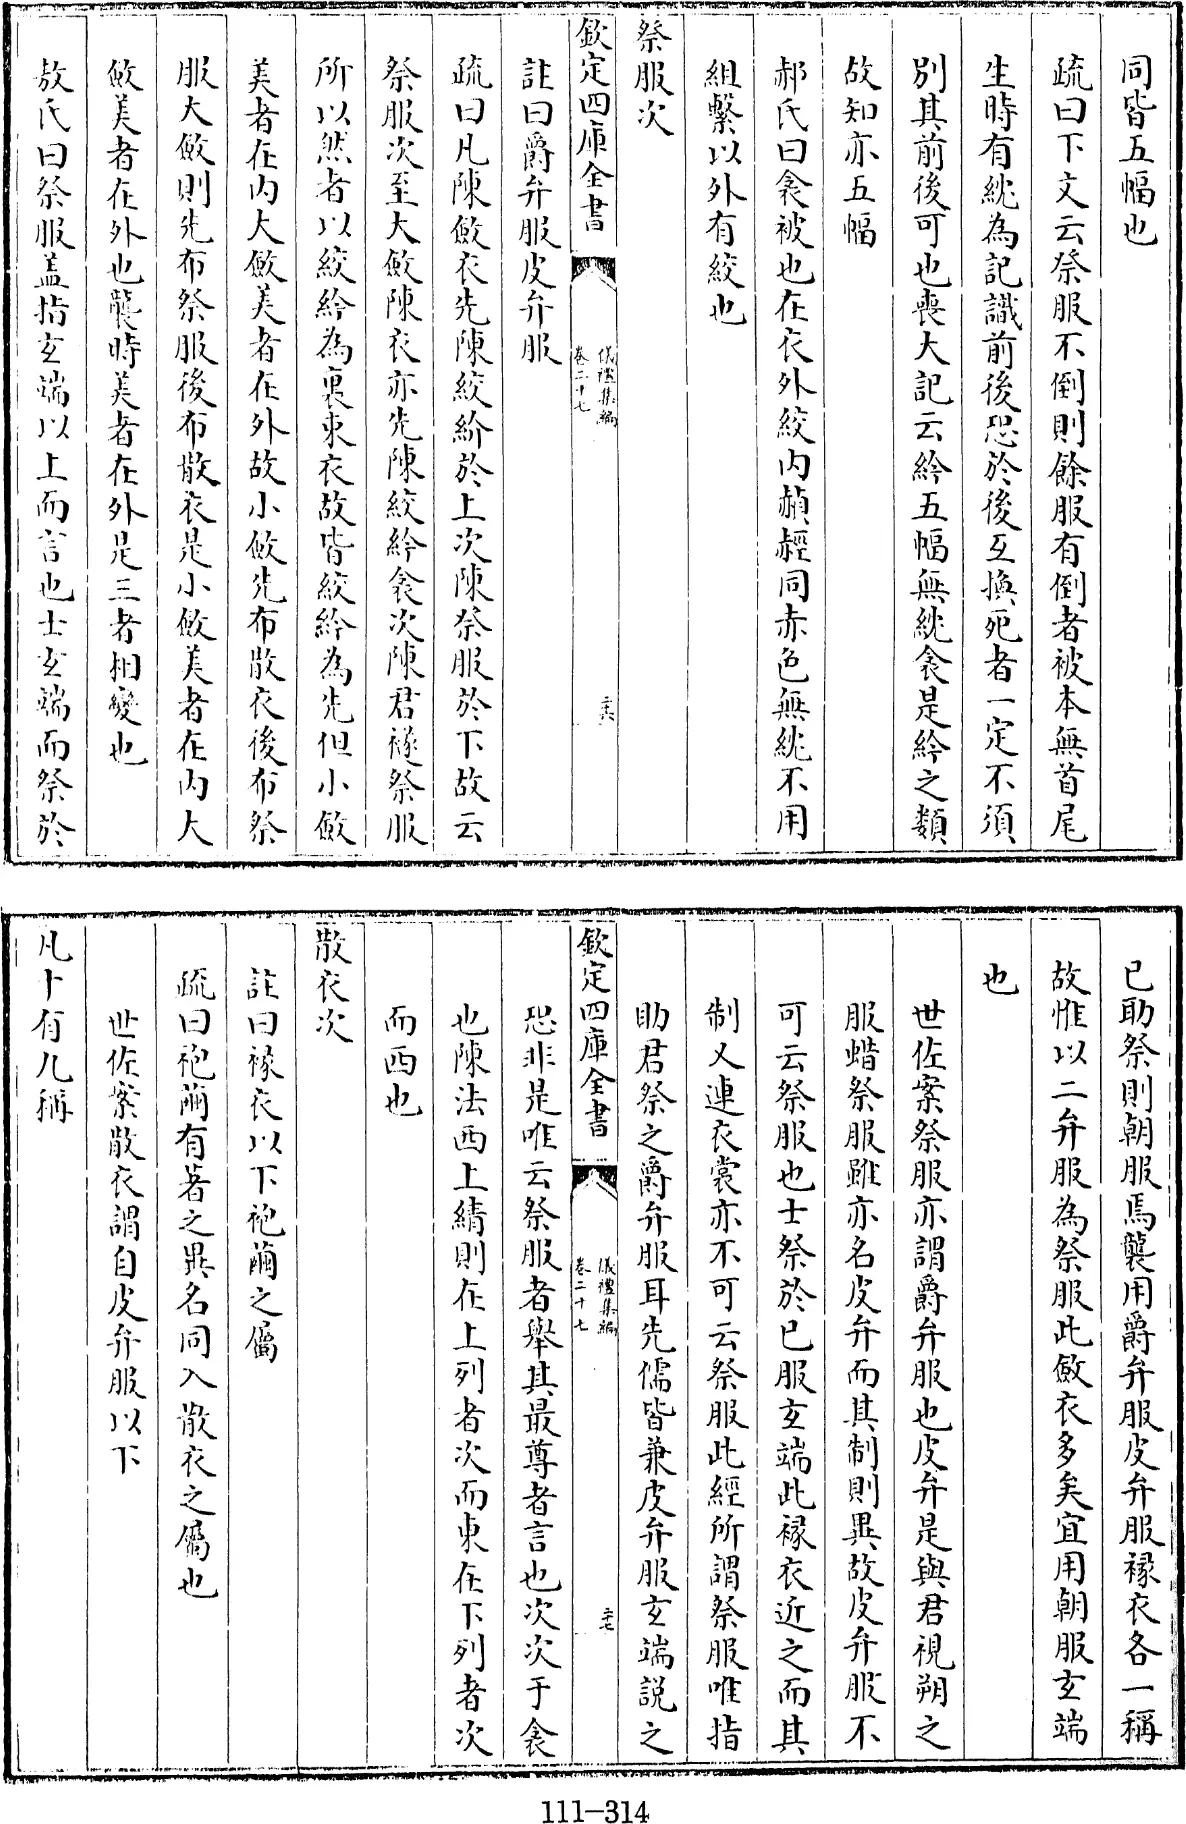 同皆五幅也
疏曰下文云祭服不倒則餘服有倒者被本無首尾
生時有紞為記識前後恐於後互換死者一定不須
別其前後可也喪大記云紟五幅無紞衾是紟之類
故知亦五幅
郝氏曰衾被也在衣外絞内赬經同赤色無紞不用
組繫以外有絞也
祭服次
欽定四庫全書
儀禮集編
卷二十七
二十六
註曰爵弁服皮弁服
疏曰凡陳斂衣先陳絞紟於上次陳祭服於下故云
祭服次至大斂陳衣亦先陳絞紟衾次陳君襚祭服
所以然者以絞紟為裹束衣故皆絞紟為先但小斂
美者在内大斂美者在外故小斂先布散衣後布祭
服大斂則先布祭服後布散衣是小斂美者在内大
斂美者在外也襲時美者在外是三者相變也
敖氏曰祭服盖指玄端以上而言也士玄端而祭於
已助祭則朝服焉襲用爵弁服皮弁服褖衣各一稱
故惟以二弁服為祭服此斂衣多矣宜用朝服玄端
也
世佐案祭服亦謂爵弁服也皮弁是與君視朔之
服蜡祭服雖亦名皮弁而其制則異故皮弁服不
可云祭服也士祭於已服玄端此褖衣近之而其
制又連衣裳亦不可云祭服此經所謂祭服唯指
助君祭之爵弁服耳先儒皆兼皮弁服玄端説之
欽定四庫全書
儀禮集編
卷二十七
二十七
恐非是唯云祭服者舉其最尊者言也次次于衾
也陳法西上綪則在上列者次而東在下列者次
而西也
散衣次
註曰褖衣以下袍繭之屬
疏曰袍繭有著之異名同入散衣之屬也
世佐案散衣謂自皮弁服以下
凡十有九稱
111-314